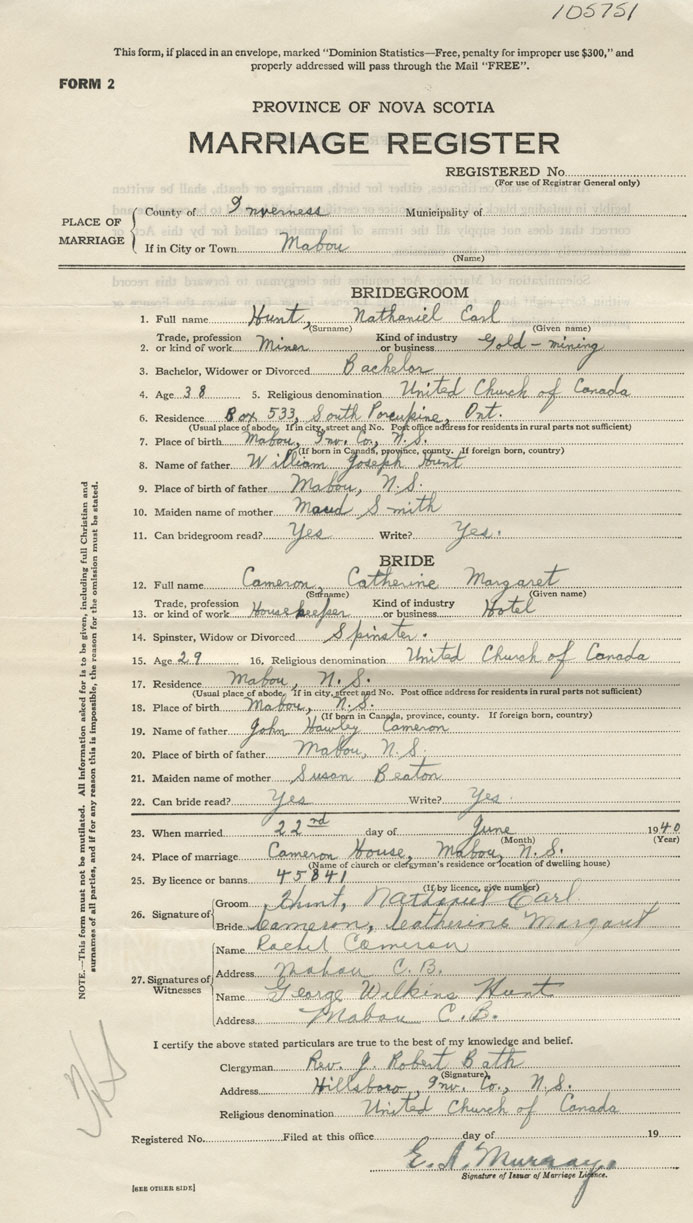 105751
This form, if placed in an envelope, marked "Dominion Statistics—Free, penalty for improper use $300," and
properly addressed will pass through the Mail "FREE".
FORM 2
PROVINCE OF NOVA SCOTIA
MARRIAGE REGISTER
REGISTERED No.
(For use of Registrar General only)
PLACE OF MARRIAGE
County of Inverness Municipality of
If in City or Town Mabou
(Name)
BRIDEGROOM
1. Full name Hunt, Nathaniel Earl
(Surname) (Given name)
2. Trade, profession or kind of work Miner Kind of industry or business Gold-mining
3. Bachelor, Widower or Divorced Bachelor
4. Age 38 5. Religious denomination United Church of Canada
6. Residence Box 533, South Porcupine, Ont.
(Usual place of abode. If in city, street and No. Post office address for residents in rural parts not sufficient)
7. Place of birth Mabou, Inv. Co., N.S.
(If born in Canada, province, county. If foreign born, country)
8. Name of father William Joseph Hunt
9. Place of birth of father Mabou, N.S.
10. Maiden name of mother Maud Smith
11. Can bridegroom read? Yes Write? Yes.
BRIDE
12. Full name Cameron, Catherine Margaret
(Surname) (Given name)
13. Trade, profession or kind of work Housekeeper Kind of industry or business Hotel
14. Spinster, Widow or Divorced Spinster.
15. Age 29 16. Religious denomination United Church of Canada
17. Residence Mabou, N.S.
(Usual place of abode. If in city, street and No. Post office address for residents in rural parts not sufficient)
18. Place of birth Mabou, N.S.
(If born in Canada, province, county. If foreign born, country)
19. Name of father John Hawley Cameron
20. Place of birth of father Mabou, N.S.
21. Maiden name of mother Susan Beaton
22. Can bride read? Yes Write? Yes.
23. When married 22nd day of June 1940
(Month) (Year)
24. Place of marriage Cameron House, Mabou, N.S.
(Name of church or clergyman's residence or location of dwelling house)
25. By licence or banns 45841
(If by licence, give number)
26. Signature of
Groom Hunt, Nathaniel Earl.
Bride Cameron, Catherine Margaret
27. Signatures of Witnesses
Name Rachel Cameron
Address Mabou C.B.
Name George Wilkins Hunt
Address Mabou C.B.
I certify the above stated particulars are true to the best of my knowledge and belief.
Clergyman Rev. J. Robert Bath
(Signature)
Address Hillsboro, Inv. Co., N.S.
Religious denomination United Church of Canada
Registered No. Filed at this office day of 19
E. A. Murray
Signature of Issuer of Marriage Licence.
[SEE OTHER SIDE]
NOTE.—This form must not be mutilated. All information asked for is to be given, including full Christian and
surnames of all parties, and if for any reason this is impossible, the reason for the omission must be stated.